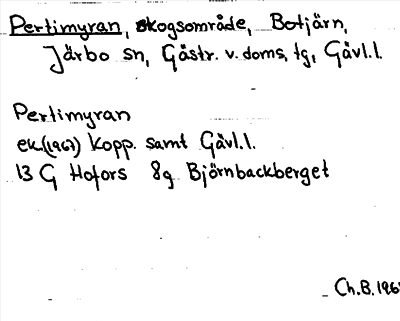 Pertimyran, skogsområde, Botjärn,
Järbo sn, Gästr. v. doms. tg, Gävl.l.
Pertimyran
ek.(1967) Kopp. samt Gävl.l.
13 G Hofors 8g Björnbackberget
Ch.B.